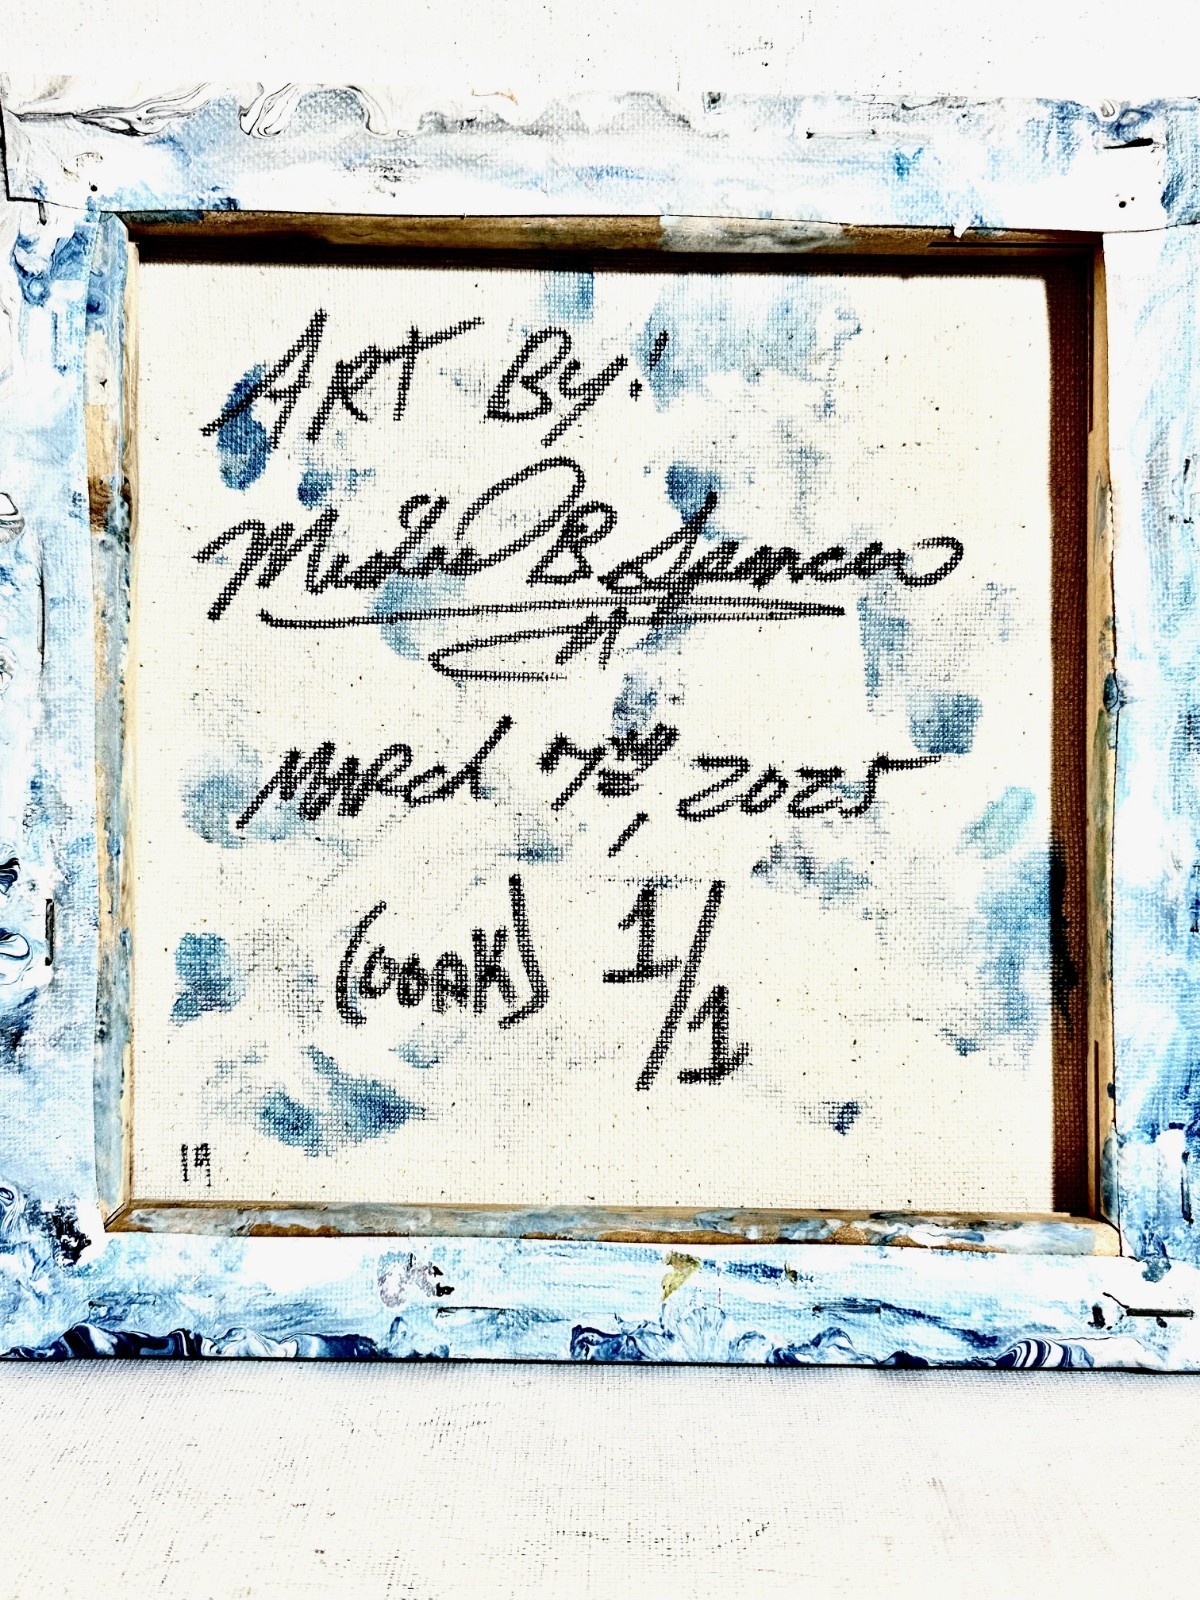 ART By:
B Spencer
MARch 7TH, 2025
(OOAK) 1/1
19